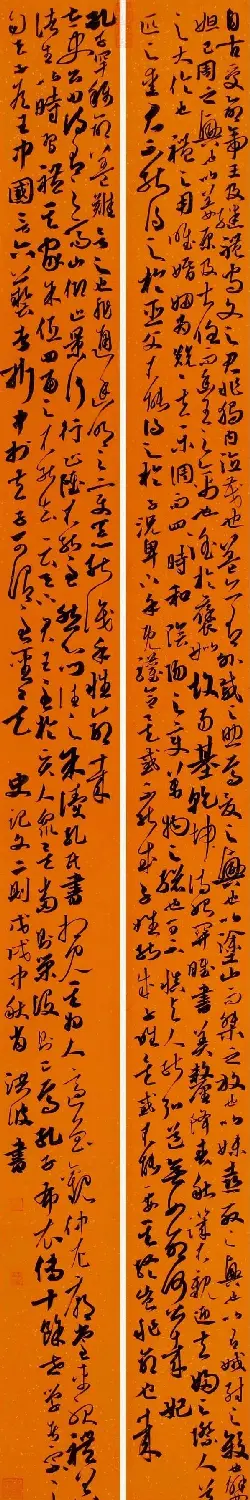 自古受命帝王及繼體守文之君非獨內德茂也蓋亦有外戚之助焉夏之興也以塗山而桀之放也以妹喜殷之興也以有娀紂之殺也嬖
妲己周之興也以姜原及大任而幽王之禽也淫於褒姒故易基乾坤詩始關雎書美釐降春秋譏不親迎夫婦之際人道
之大倫也禮之用唯婚姻為兢兢夫樂調而四時和陰陽之變萬物之統也可不慎與人能弘道無如命何甚哉妃
匹之愛君不能得之於臣父不能得之於子況卑下乎既驩合矣或不能成子姓能成子姓矣或不能要其終豈非命也哉
孔子罕稱命蓋難言之也非通幽明之變惡能識乎性命哉
太史公曰詩有之高山仰止景行行止雖不能至然心鄉往之余讀孔氏書想見其為人適魯觀仲尼廟堂車服禮器
諸生以時習禮其家余低回留之不能去云天下君王至於賢人眾矣當時則榮沒則已焉孔子布衣傳十餘世學者宗之
自天子王侯中國言六藝者折中於夫子可謂至聖矣 史記文二則戊戌中秋前 洪波書